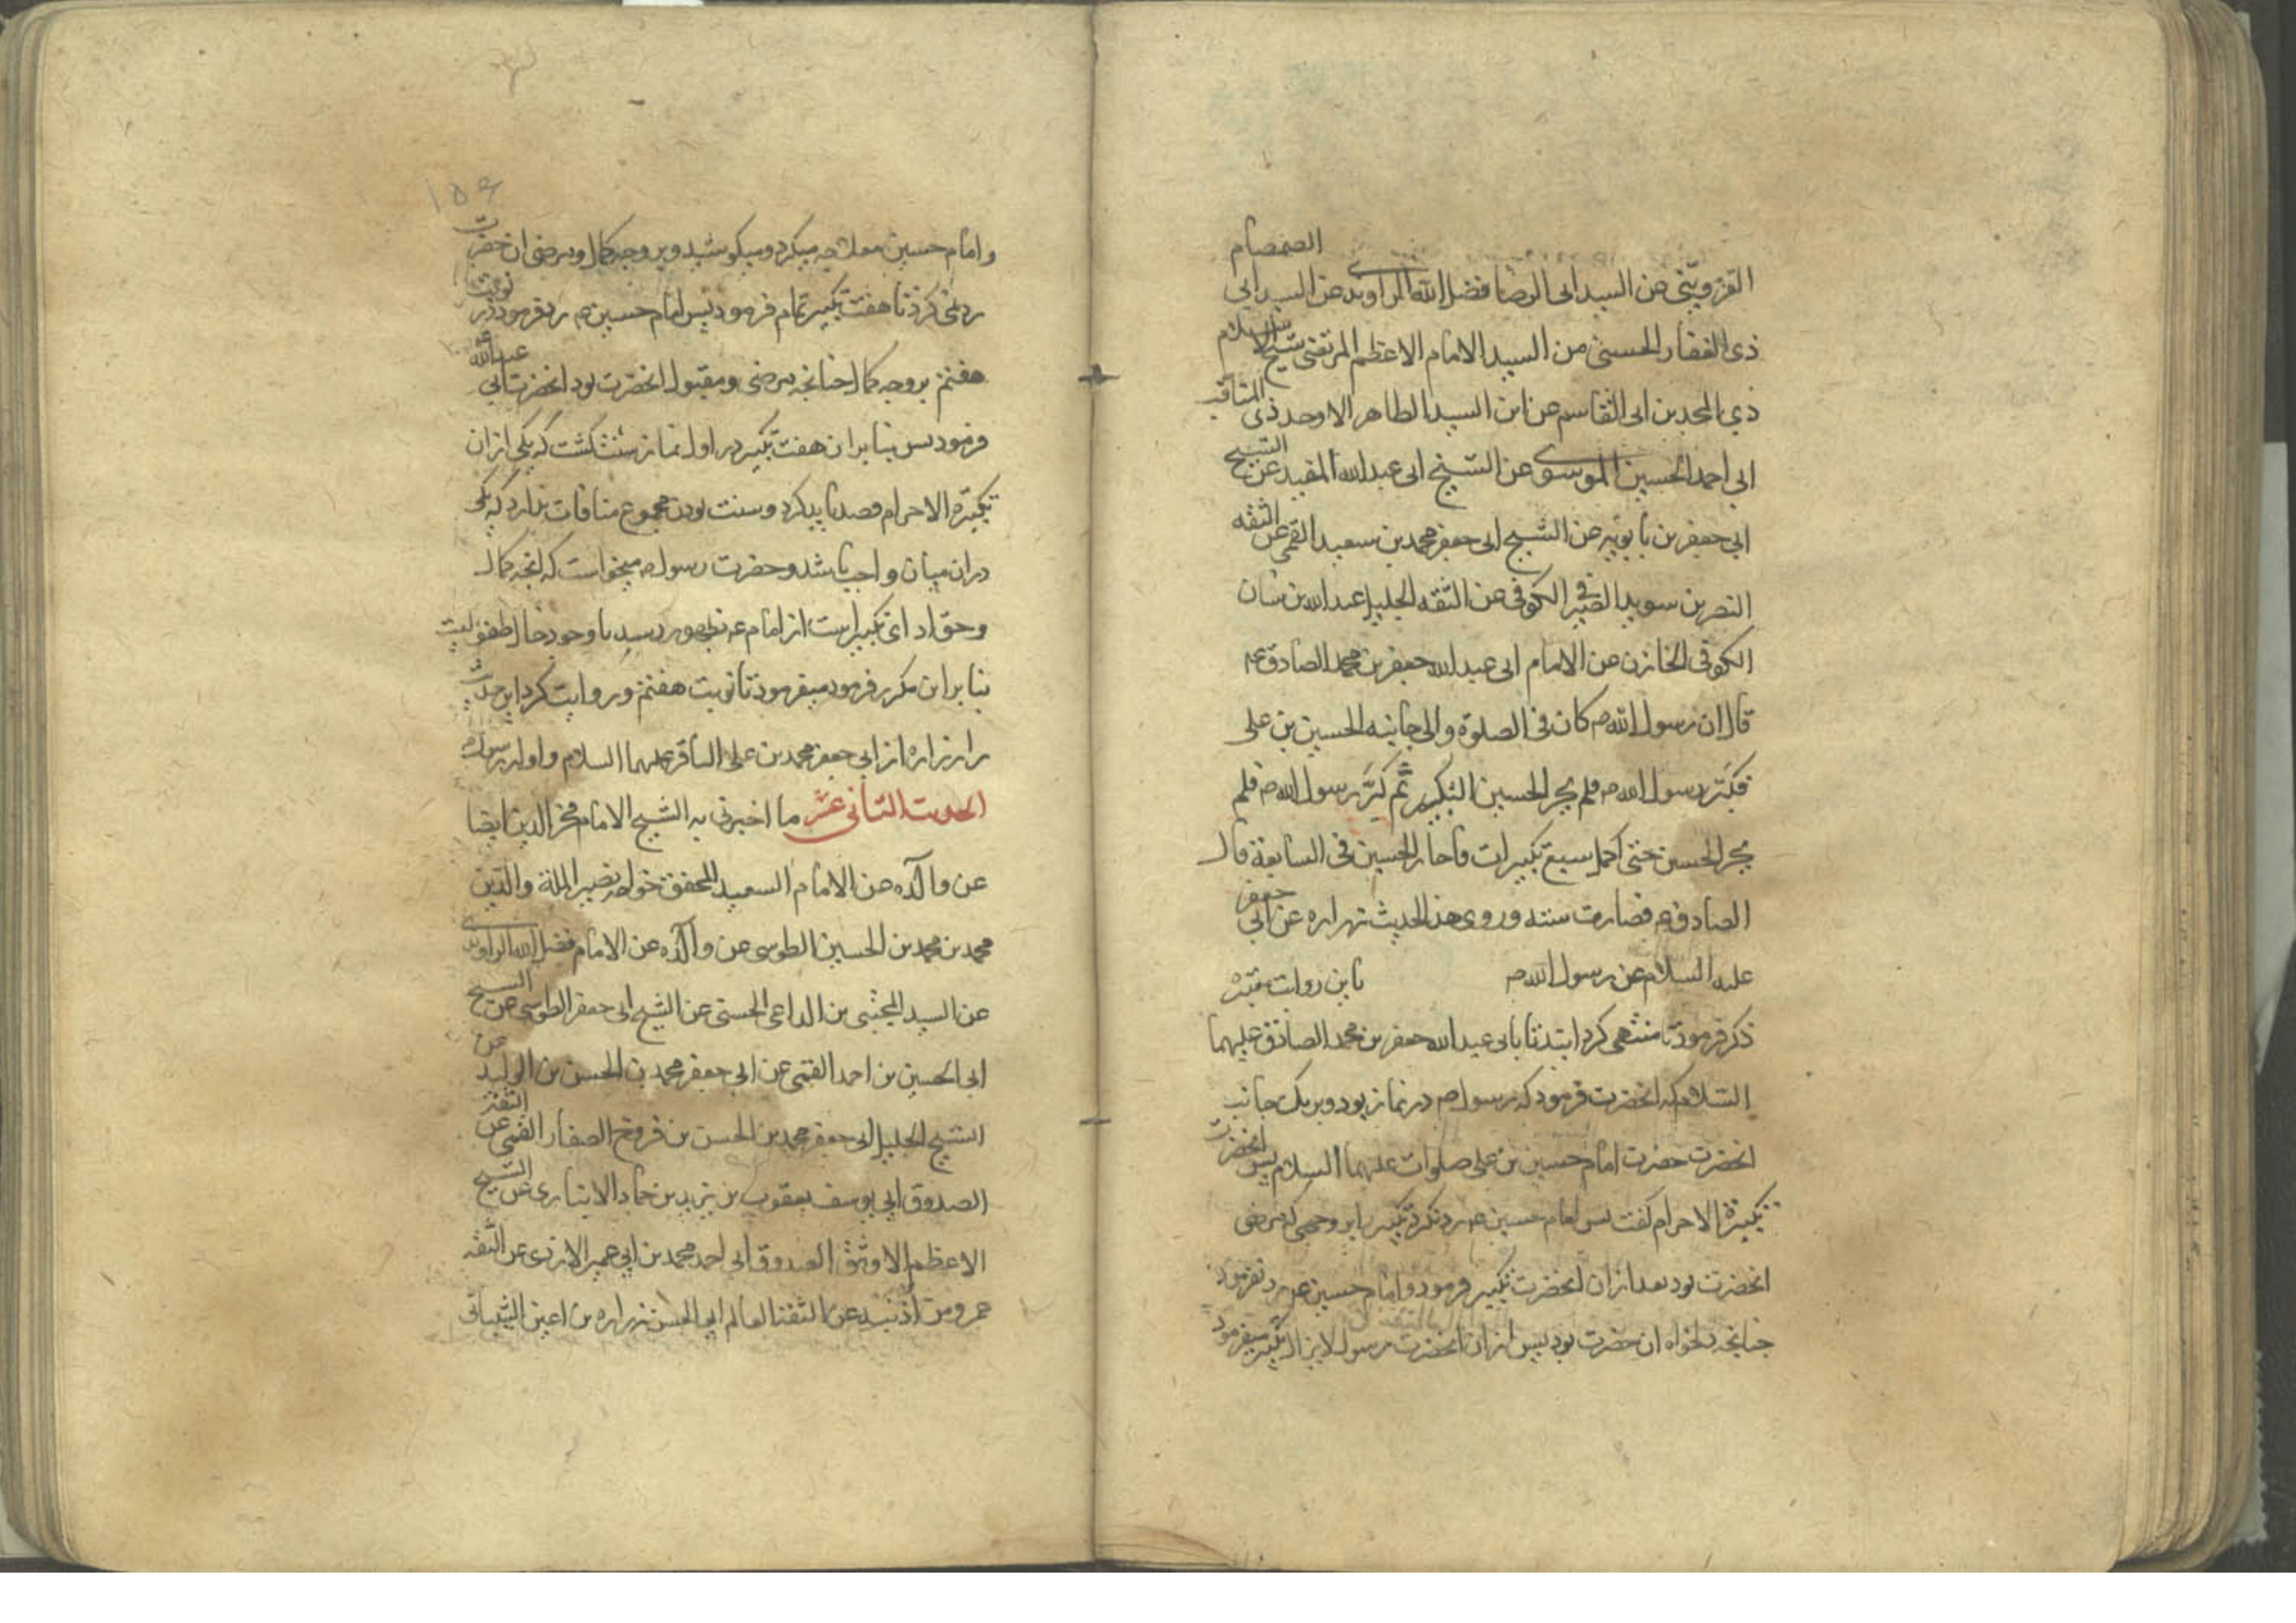 القزويني عن السيد ابى الرضا فضل الله الراوندى عن السيد ابي الصمصام
ذى الفقار الحسنى من السيد الامام الاعظم المرتضى شيخ الاسلام
ذي المجدين ابى القاسم عن ابن السيد الطاهر الاوحد ذى المناقب
ابي احمد الحسين الموسوى عن الشيخ ابى عبدالله المفيد عن الشيخ
ابي جعفر بن بابويه عن الشيخ ابى جعفر محمد بن سعيد القمى عن الثقه
النضر بن سويد الصيرفى الكوفى عن الثقه الجليل عبدالله بن سنان
الكوفى الخازن عن الامام ابى عبدالله جعفر بن محمد الصادق عم
قال ان رسول الله ص كان فى الصلوة والى جانبه الحسين بن على
فكبّر رسول الله ص فلم يحر الحسين التكبير ثمّ كبّر رسول الله ص فلم
يحر الحسين حتى اكمل سبع تكبيرات فاحار الحسين فى السابعة قال
الصادق ع فصارت سنته وروى هذا الحديث زراره عن ابي جعفر
عليه السلام عن رسول الله ص باين روايت
ذكر فرمود تا منتهى كرد بابى عبدالله جعفر بن محمد الصادق عليهما
السّلام كه انحضرت فرمود كه رسول ص در نماز بود وبر يك جانب
انحضرت حضرت امام حسين بن على صلوات عليهما السلام پس انحضرت
تكبيرة الاحرام كفت پس امام حسين عم رد نكرد تكبير را بر وجهى كه مرضى
انحضرت بود بعد از ان انحضرت تكبير فرمود و امام حسين عم رد نفرمود
چنانچه دلخواه ان حضرت بود پس از ان انحضرت رسول لايزال تكبير ميفرمود
١٥٤
و امام حسين معالجه ميكرد وميكوشيد وبر وجه كمال ومرضى ان حضرت
رد نمى كرد تا هفت تكبير تمام فرمود پس امام حسين ع رد فرمود در نوبت
هفتم بر وجه كمال چنانچه مرضى ومقبول انحضرت بود انحضرت ابى عبدالله
فرمود پس بنابر ان هفت تكبير در اول نماز سنت كشت كه يكى از ان
تكبيرة الاحرام قصد بايد كرد وسنت بودن مجموع منافات ندارد كه يكى
در ان ميان واجب باشد وحضرت رسول ص ميخواست كه انچه كمال
وحق اداى تكبير است از امام عم بظهور رسد با وجود حال طفوليت
بنابر اين مكرر فرمود ميفرمود تا نوبت هفتم وروايت كرد اين حديث
را زراره از ابى جعفر محمد بن على الباقر عليهما السلام و او از رسول ص
الحديث الثانى عشر ما اخبرنى به الشيخ الامام فخر الدين ايضا
عن والده عن الامام السعيد المحقق خواجه نصير الملة والدّين
محمد بن محمد بن الحسين الطوسى عن والده عن الامام فضل الله الراوندى
عن السيد المجتبى بن الداعى الحسنى عن الشيخ ابى جعفر الطوسى عن الشيخ
ابى الحسين بن احمد القمى عن ابى جعفر محمد بن الحسن بن الوليد عن
الشيخ الجليل ابى جعفر محمد بن الحسن بن فروخ الصفار القمى عن الثقة
الصدوق ابى يوسف يعقوب بن يزيد بن حماد الانبارى عن الشيخ
الاعظم الاوثق الصدوق ابى احمد محمد بن ابى عمير الازدى عن الثقه
عمرو من اذنيه عن الثقة العالم ابى الحسن زراره بن اعين الشيبانى